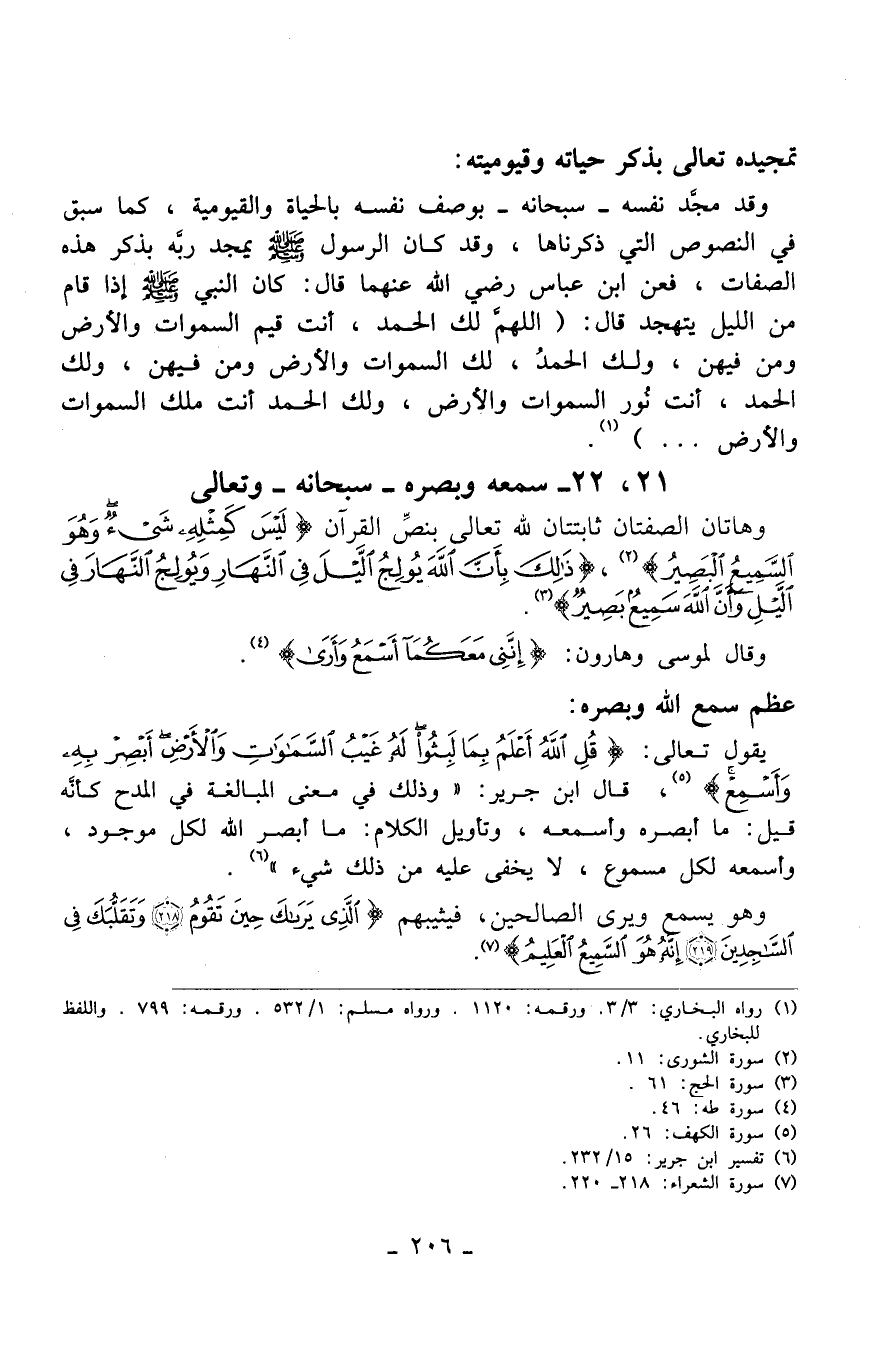 تمجيده تعالى بذكر حياته وقيوميته:
وقد مجَّد نفسه ـ سبحانه ـ بوصف نفسه بالحياة والقيومية ، كما سبق
في النصوص التي ذكرناها ، وقد كان الرسول ﷺ يمجد ربَّه بذكر هذه
الصفات ، فعن ابن عباس رضي الله عنهما قال: كان النبي ﷺ إذا قام
من الليل يتهجد قال: ( اللهمَّ لك الحمد ، أنت قيم السموات والأرض
ومن فيهن ، ولك الحمدُ ، لك السموات والأرض ومن فيهن ، ولك
الحمد ، أنت نُور السموات والأرض ، ولك الحمد أنت ملك السموات
والأرض ... ) (١).
٢١ ، ٢٢ـ سمعه وبصره ـ سبحانه ـ وتعالى
وهاتان الصفتان ثابتتان لله تعالى بنصِّ القرآن ﴿ لَيْسَ كَمِثْلِهِۦ شَىْءٌ ۖ وَهُوَ
ٱلسَّمِيعُ ٱلْبَصِيرُ ﴾ (٢) ، ﴿ ذَٰلِكَ بِأَنَّ ٱللَّهَ يُولِجُ ٱلَّيْلَ فِى ٱلنَّهَارِ وَيُولِجُ ٱلنَّهَارَ فِى
ٱلَّيْلِ وَأَنَّ ٱللَّهَ سَمِيعٌۢ بَصِيرٌ ﴾ (٣) .
وقال لموسى وهارون: ﴿ إِنَّنِى مَعَكُمَآ أَسْمَعُ وَأَرَىٰ ﴾ (٤) .
عظم سمع الله وبصره:
يقول تعالى: ﴿ قُلِ ٱللَّهُ أَعْلَمُ بِمَا لَبِثُوا۟ ۖ لَهُۥ غَيْبُ ٱلسَّمَٰوَٰتِ وَٱلْأَرْضِ ۖ أَبْصِرْ بِهِۦ
وَأَسْمِعْ ۚ ﴾ (٥) ، قال ابن جرير: « وذلك في معنى المبالغة في المدح كأنَّه
قيل: ما أبصره وأسمعه ، وتأويل الكلام: ما أبصر الله لكل موجود ،
وأسمعه لكل مسموع ، لا يخفى عليه من ذلك شيء »(٦) .
وهو يسمع ويرى الصالحين، فيثيبهم ﴿ ٱلَّذِى يَرَىٰكَ حِينَ تَقُومُ ٢١٨ وَتَقَلُّبَكَ فِى
ٱلسَّٰجِدِينَ ٢١٩ إِنَّهُۥ هُوَ ٱلسَّمِيعُ ٱلْعَلِيمُ ﴾ (٧).
(١) رواه البخاري: ٣/٣. ورقمه: ١١٢٠ . ورواه مسلم: ٥٣٢/١ . ورقمه: ٧٩٩ . واللفظ
للبخاري.
(٢) سورة الشورى: ١١ .
(٣) سورة الحج: ٦١ .
(٤) سورة طه: ٤٦ .
(٥) سورة الكهف: ٢٦ .
(٦) تفسير ابن جرير: ٢٣٢/١٥ .
(٧) سورة الشعراء: ٢١٨ـ ٢٢٠ .
ـ ٢٠٦ ـ